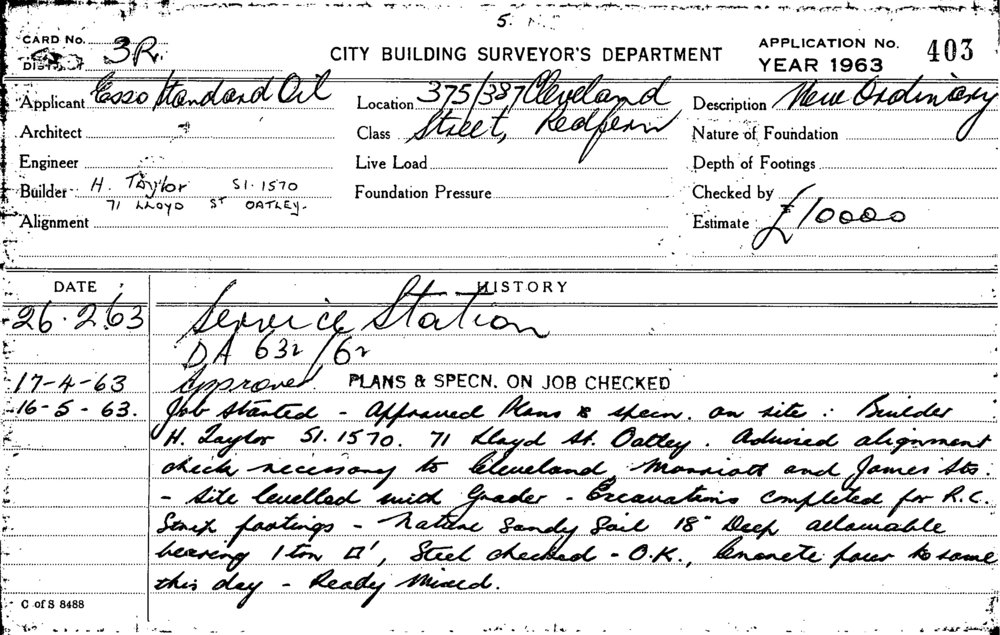 5.
CARD No. 3R.
CITY BUILDING SURVEYOR'S DEPARTMENT
APPLICATION No. 403
YEAR 1963
Applicant Esso Standard Oil
Location 375/387 Cleveland
Description New Ordinary
Architect
Class Street, Redfern
Nature of Foundation
Engineer
Live Load
Depth of Footings
Builder H. Taylor S1.1570
71 LLOYD ST OATLEY.
Foundation Pressure
Checked by
Alignment
Estimate £10000
DATE HISTORY
26.2.63 Service Station
DA 632/62
17-4-63 Approved PLANS & SPECN. ON JOB CHECKED
16-5-63. Job started - Approved Plans & specn. on site : Builder
H. Taylor S1.1570. 71 Lloyd St. Oatley. Advised alignment
check necessary to Cleveland, Marriott and James Sts.
- Site levelled with Grader - Excavations completed for R.C.
Strip footings - Nature Sandy Soil 18" Deep allowable
bearing 1 ton □', Steel checked - O.K., Concrete pour to same
this day - Ready Mixed.
C of S 8488